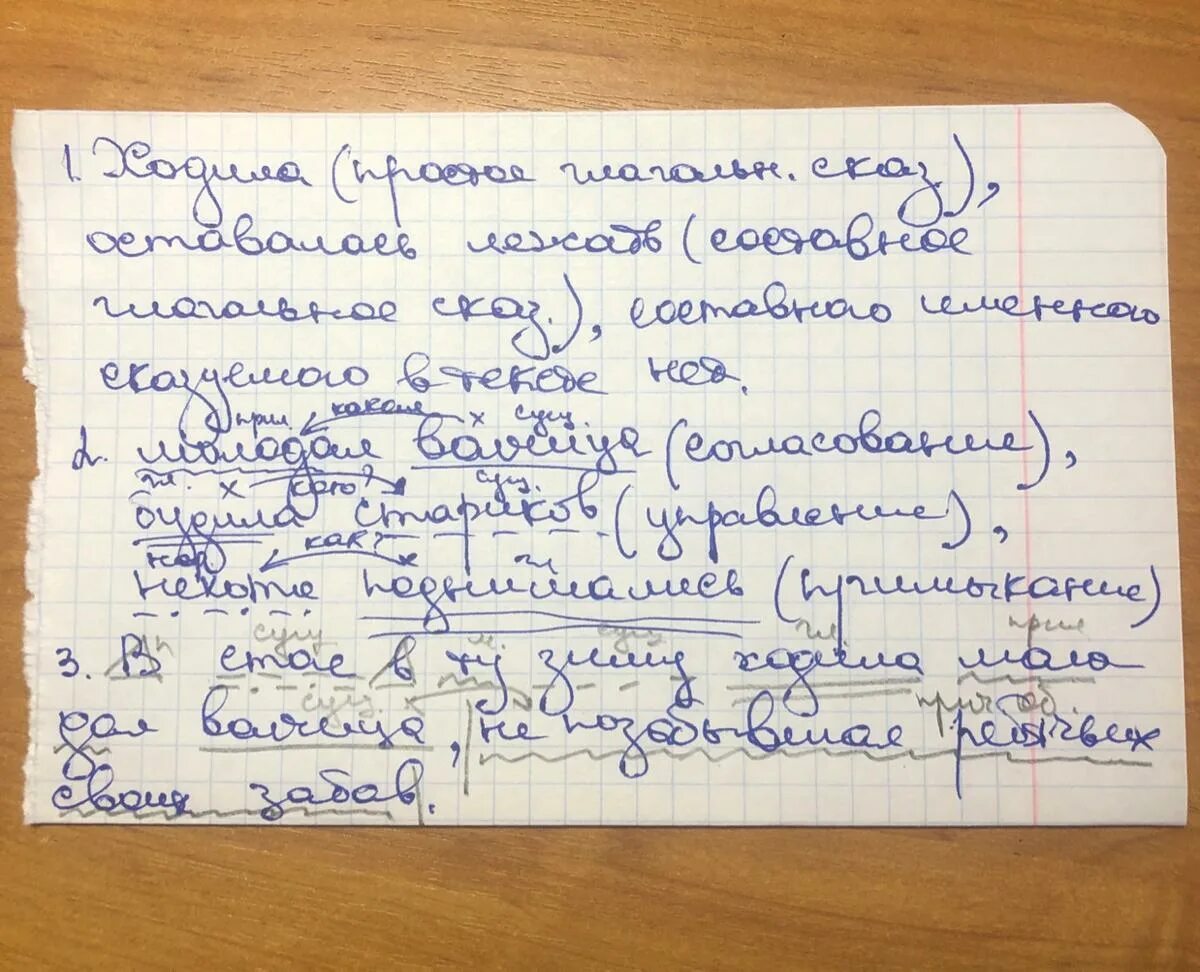 1. Ходила (простое глагольн. сказ.),
оставалась лежать (составное
глагольное сказ.), составного именного
сказуемого в тексте нет.
прил какая x сущ.
2. молодая волчица (согласование),
гл. x кого? сущ.
будила стариков (управление),
нар как? x гл
нехотя поднимались (примыкание)
п сущ м. сущ гл. прил
3. В стае в ту зиму ходила моло
сущ. x прич. об.
дая волчица, не позабывшая ребячьих
своих забав.